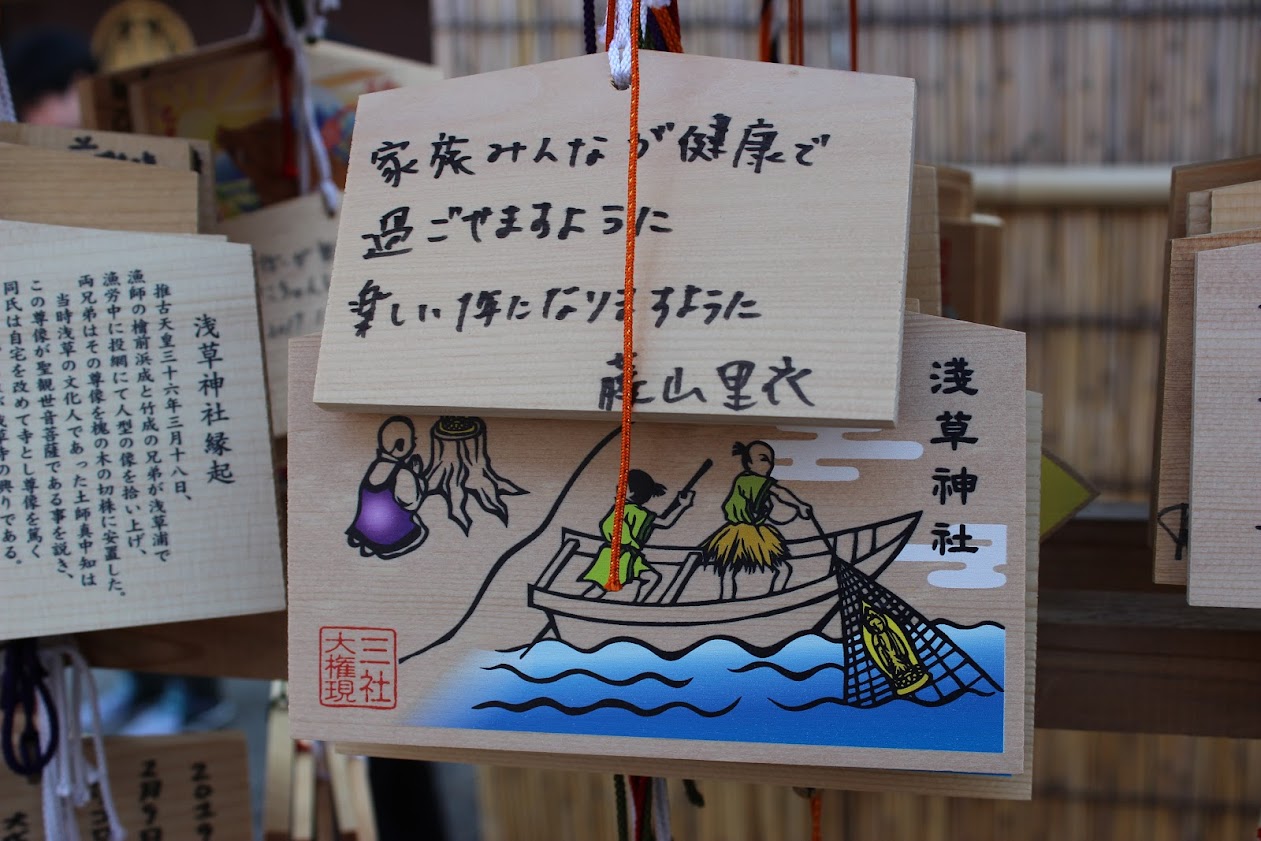 家族みんなが健康で
過ごせますように
楽しい1年になりますように
藤山里衣
浅草神社
三社
大権現
浅草神社縁起
推古天皇三十六年三月十八日、
漁師の檜前浜成と竹成の兄弟が浅草浦で
漁労中に投網にて人型の像を拾い上げ、
両兄弟はその尊像を槐の木の切株に安置した。
当時浅草の文化人であった土師真中知は
この尊像が聖観世音菩薩である事を説き、
同氏は自宅を改めて寺とし尊像を篤く
浅草寺の興りである。
2019
2月9日